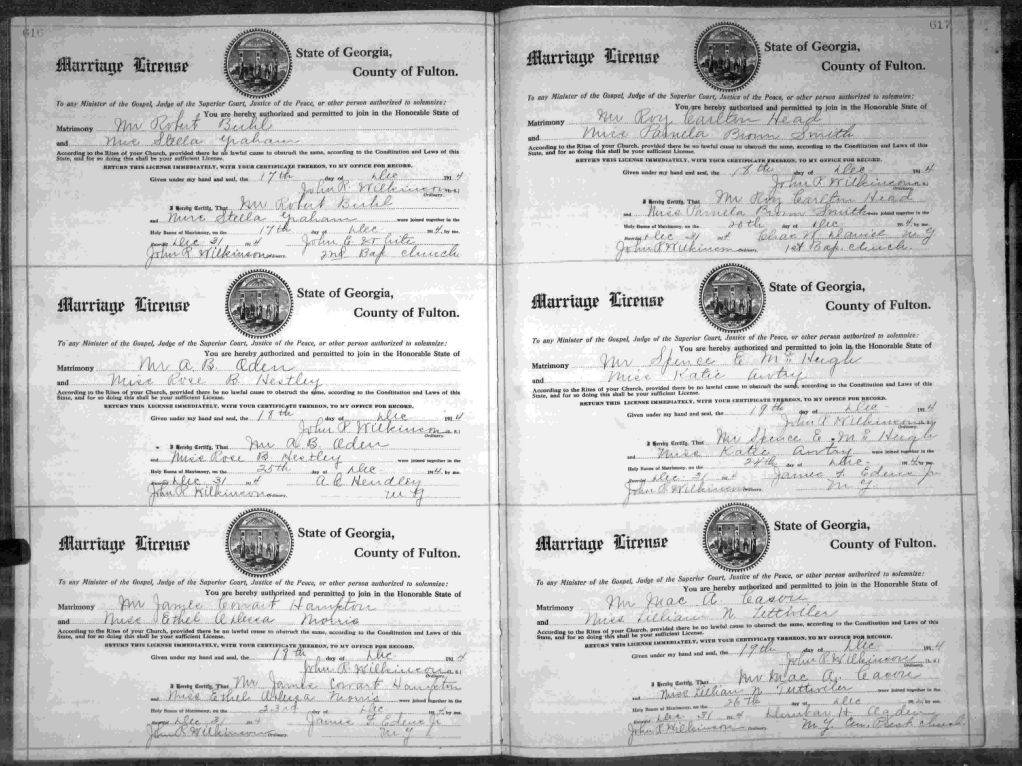 616
Marriage License
State of Georgia,
County of Fulton.
To any Minister of the Gospel, Judge of the Superior Court, Justice of the Peace, or other person authorized to solemnize:
You are hereby authorized and permitted to join in the Honorable State of
Matrimony Mr Robert
and Stella Graham
According to the Rites of your Church, provided there be no lawful cause to obstruct the same, according to the Constitution and Laws of this
State, and for so doing this shall be your sufficient License.
RETURN THIS LICENSE IMMEDIATELY, WITH YOUR CERTIFICATE THEREON, TO MY OFFICE FOR RECORD.
Given under my hand and seal, the 17th day of Dec 1914
John R Wilkinson
Ordinary.
I Hereby Certify, That Mr Robert
and Stella Graham were joined together in the
Holy Banns of Matrimony, on the 17th day of Dec 1914, by me.
Recorded Dec 31 1914 John E White
John R Wilkinson Ordinary. 2nd Bap church
Marriage License
State of Georgia,
County of Fulton.
To any Minister of the Gospel, Judge of the Superior Court, Justice of the Peace, or other person authorized to solemnize:
You are hereby authorized and permitted to join in the Honorable State of
Matrimony Mr A. B. Oden
and Miss Rose B. Hestley
According to the Rites of your Church, provided there be no lawful cause to obstruct the same, according to the Constitution and Laws of this
State, and for so doing this shall be your sufficient License.
RETURN THIS LICENSE IMMEDIATELY, WITH YOUR CERTIFICATE THEREON, TO MY OFFICE FOR RECORD.
Given under my hand and seal, the 18th day of Dec 1914
John R Wilkinson
Ordinary.
I Hereby Certify, That Mr A B Oden
and Miss Rose B Hestley were joined together in the
Holy Banns of Matrimony, on the 25th day of Dec 1914, by me.
Recorded Dec 31 1914 A. C. Hendley
John R Wilkinson Ordinary. M G
Marriage License
State of Georgia,
County of Fulton.
To any Minister of the Gospel, Judge of the Superior Court, Justice of the Peace, or other person authorized to solemnize:
You are hereby authorized and permitted to join in the Honorable State of
Matrimony Mr James Cowart Hampton
and Miss Ethel Morris
According to the Rites of your Church, provided there be no lawful cause to obstruct the same, according to the Constitution and Laws of this
State, and for so doing this shall be your sufficient License.
RETURN THIS LICENSE IMMEDIATELY, WITH YOUR CERTIFICATE THEREON, TO MY OFFICE FOR RECORD.
Given under my hand and seal, the 18th day of Dec 1914
John R Wilkinson
Ordinary.
I Hereby Certify, That Mr James Cowart Hampton
and Miss Ethel Morris were joined together in the
Holy Banns of Matrimony, on the 23rd day of Dec 1914, by me.
Recorded Dec 31 1914 James F Edens Jr
John R Wilkinson Ordinary. M G
617
Marriage License
State of Georgia,
County of Fulton.
To any Minister of the Gospel, Judge of the Superior Court, Justice of the Peace, or other person authorized to solemnize:
You are hereby authorized and permitted to join in the Honorable State of
Matrimony Mr Roy Carlton Head
and Miss Pamela Brown Smith
According to the Rites of your Church, provided there be no lawful cause to obstruct the same, according to the Constitution and Laws of this
State, and for so doing this shall be your sufficient License.
RETURN THIS LICENSE IMMEDIATELY, WITH YOUR CERTIFICATE THEREON, TO MY OFFICE FOR RECORD.
Given under my hand and seal, the 18th day of Dec 1914
John R Wilkinson
Ordinary.
I Hereby Certify, That Mr Roy Carlton Head
and Miss Pamela Brown Smith were joined together in the
Holy Banns of Matrimony, on the 20th day of Dec 1914, by me.
Recorded Dec 31 1914 M G
John R Wilkinson Ordinary. 1st Bap church
Marriage License
State of Georgia,
County of Fulton.
To any Minister of the Gospel, Judge of the Superior Court, Justice of the Peace, or other person authorized to solemnize:
You are hereby authorized and permitted to join in the Honorable State of
Matrimony Mr Spence E. Heigh
and Miss Katie Awtry
According to the Rites of your Church, provided there be no lawful cause to obstruct the same, according to the Constitution and Laws of this
State, and for so doing this shall be your sufficient License.
RETURN THIS LICENSE IMMEDIATELY, WITH YOUR CERTIFICATE THEREON, TO MY OFFICE FOR RECORD.
Given under my hand and seal, the 19th day of Dec 1914
John R Wilkinson
Ordinary.
I Hereby Certify, That Mr Spence E. Heigh
and Miss Katie Awtry were joined together in the
Holy Banns of Matrimony, on the 24th day of Dec 1914, by me.
Recorded Dec 31 1914 James F Edens Jr
John R Wilkinson Ordinary. M G
Marriage License
State of Georgia,
County of Fulton.
To any Minister of the Gospel, Judge of the Superior Court, Justice of the Peace, or other person authorized to solemnize:
You are hereby authorized and permitted to join in the Honorable State of
Matrimony Mr Mac A. Cason
and Miss Lillian N. Tuttwiler
According to the Rites of your Church, provided there be no lawful cause to obstruct the same, according to the Constitution and Laws of this
State, and for so doing this shall be your sufficient License.
RETURN THIS LICENSE IMMEDIATELY, WITH YOUR CERTIFICATE THEREON, TO MY OFFICE FOR RECORD.
Given under my hand and seal, the 19th day of Dec 1914
John R Wilkinson
Ordinary.
I Hereby Certify, That Mr Mac A. Cason
and Miss Lillian N Tuttwiler were joined together in the
Holy Banns of Matrimony, on the 26th day of Dec by me.
Recorded Dec 31 1914 Dunbar H. Ogden
John R Wilkinson Ordinary. M G Cen Presb church